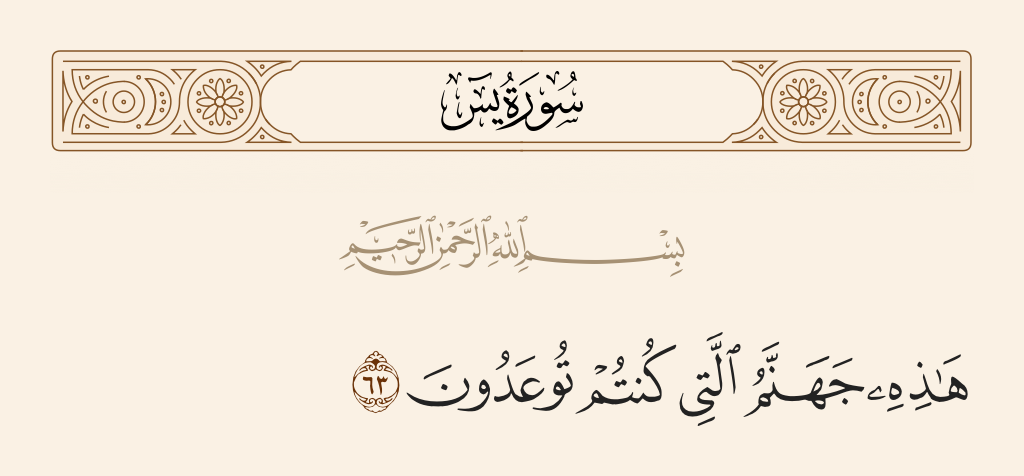 سُورَةُ يسٓ
بِسْمِ ٱللَّهِ ٱلرَّحْمَٰنِ ٱلرَّحِيمِ
هَٰذِهِۦ جَهَنَّمُ ٱلَّتِي كُنتُمْ تُوعَدُونَ ٦٣